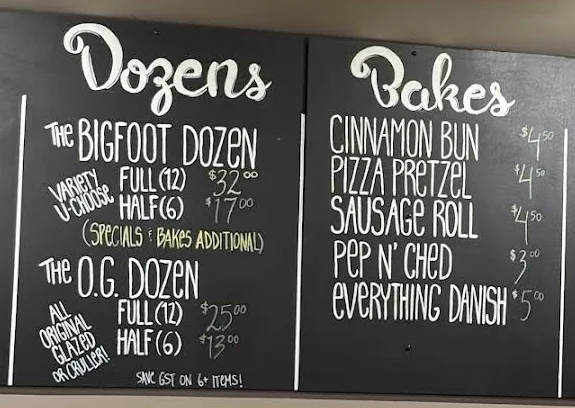 Dozens
THE BIGFOOT DOZEN
VARIETY
U-CHOOSE
FULL (12) $32.00
HALF (6) $17.00
(SPECIALS & BAKES ADDITIONAL)
THE O.G. DOZEN
ALL
ORIGINAL
GLAZED
OR CRULLER!
FULL (12) $25.00
HALF (6) $13.00
SAVE GST ON 6+ ITEMS!
Bakes
CINNAMON BUN $4.50
PIZZA PRETZEL $4.50
SAUSAGE ROLL $4.50
PEP N' CHED $3.00
EVERYTHING DANISH $5.00